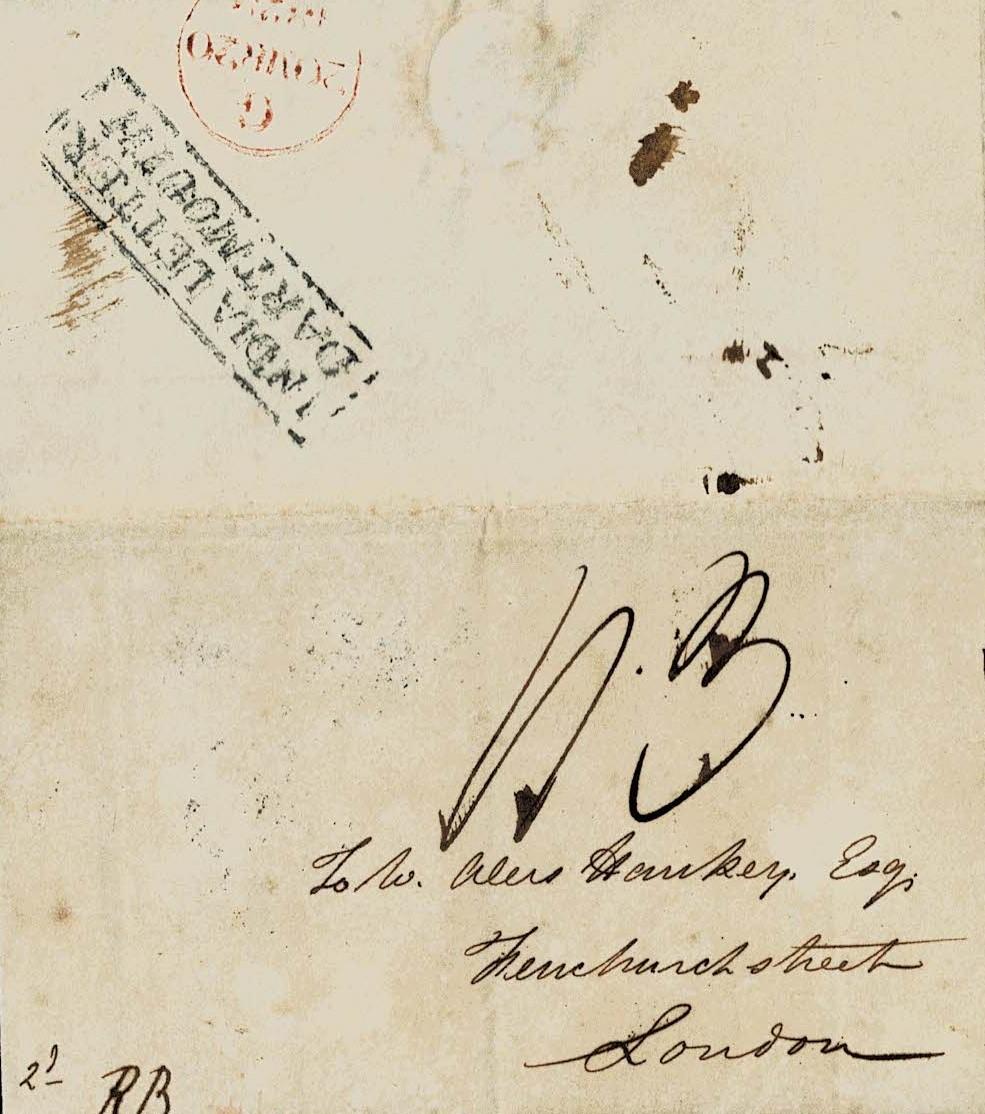 INDIA LETTER
DARTMOUTH
To W. Alers Hankey. Esq.
Fenchurch street
London
2/
RB